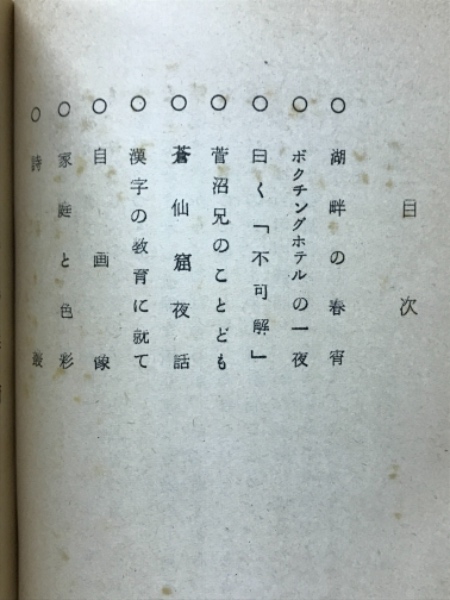 目次
○ 湖畔の春宵
○ ボクチングホテルの一夜
○ 曰く「不可解」
○ 菅沼兄のことども
○ 蒼仙窟夜話
○ 漢字の教育に就て
○ 自画像
○ 家庭と色彩
○ 詩叢